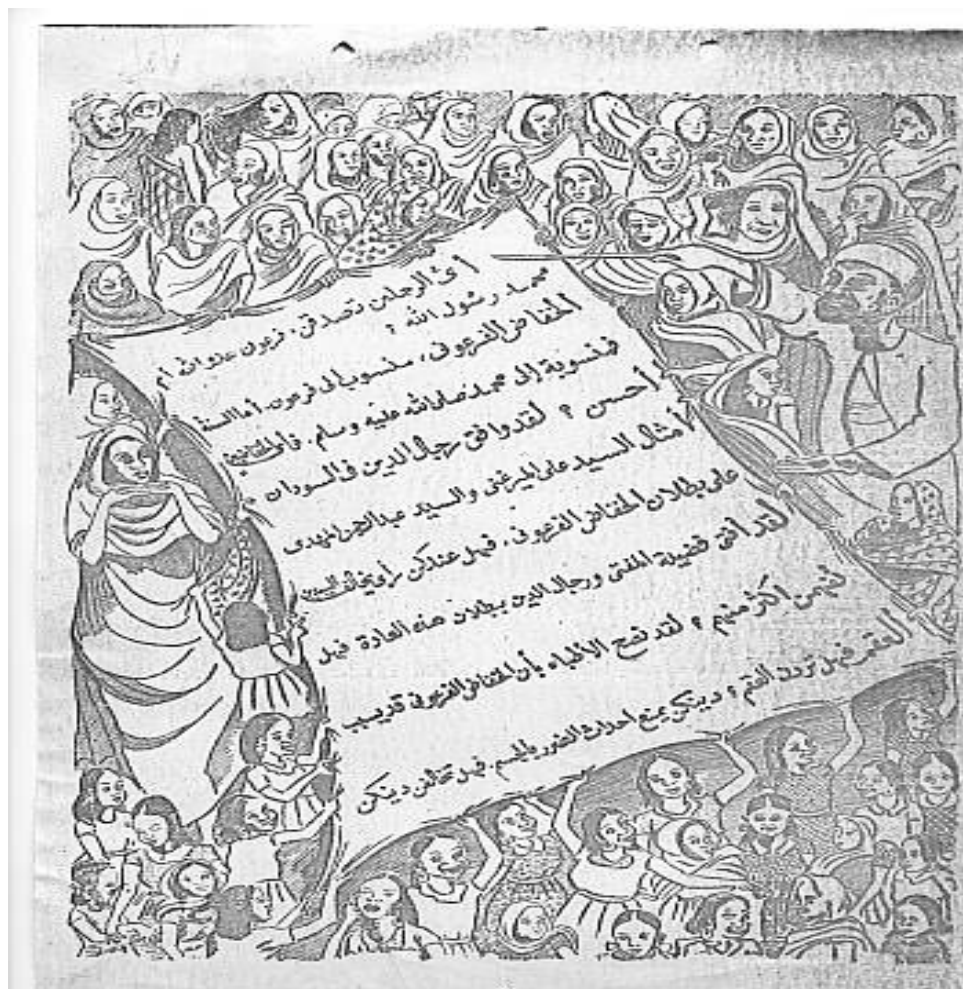 أى الرجلين تصدقن، فرعون عدو الله أم
محمد رسول الله ؟
الخفاض الفرعونى، منسوب إلى فرعون، أما السنة
فمنسوبة إلى محمد صلى الله عليه وسلم، فأى
أحسن ؟ لقد وافق رجال الدين فى السودان
أمثال السيد على الميرغنى والسيد عبد الرحمن المهدى
على بطلان الخفاض الفرعونى، فهل عندكن رأى يخالف
لقد أفتى فضيلة المفتى ورجال الدين ببطلان هذه العادة فهل
أكثر منهم ؟ لقد نصح الأطباء بأن الخفاض الفرعونى قد يسبب
العقم فهل تردن العقم ؟ دينكن يمنع احداث الضرر بالجسم فهل تخالفن دينكن